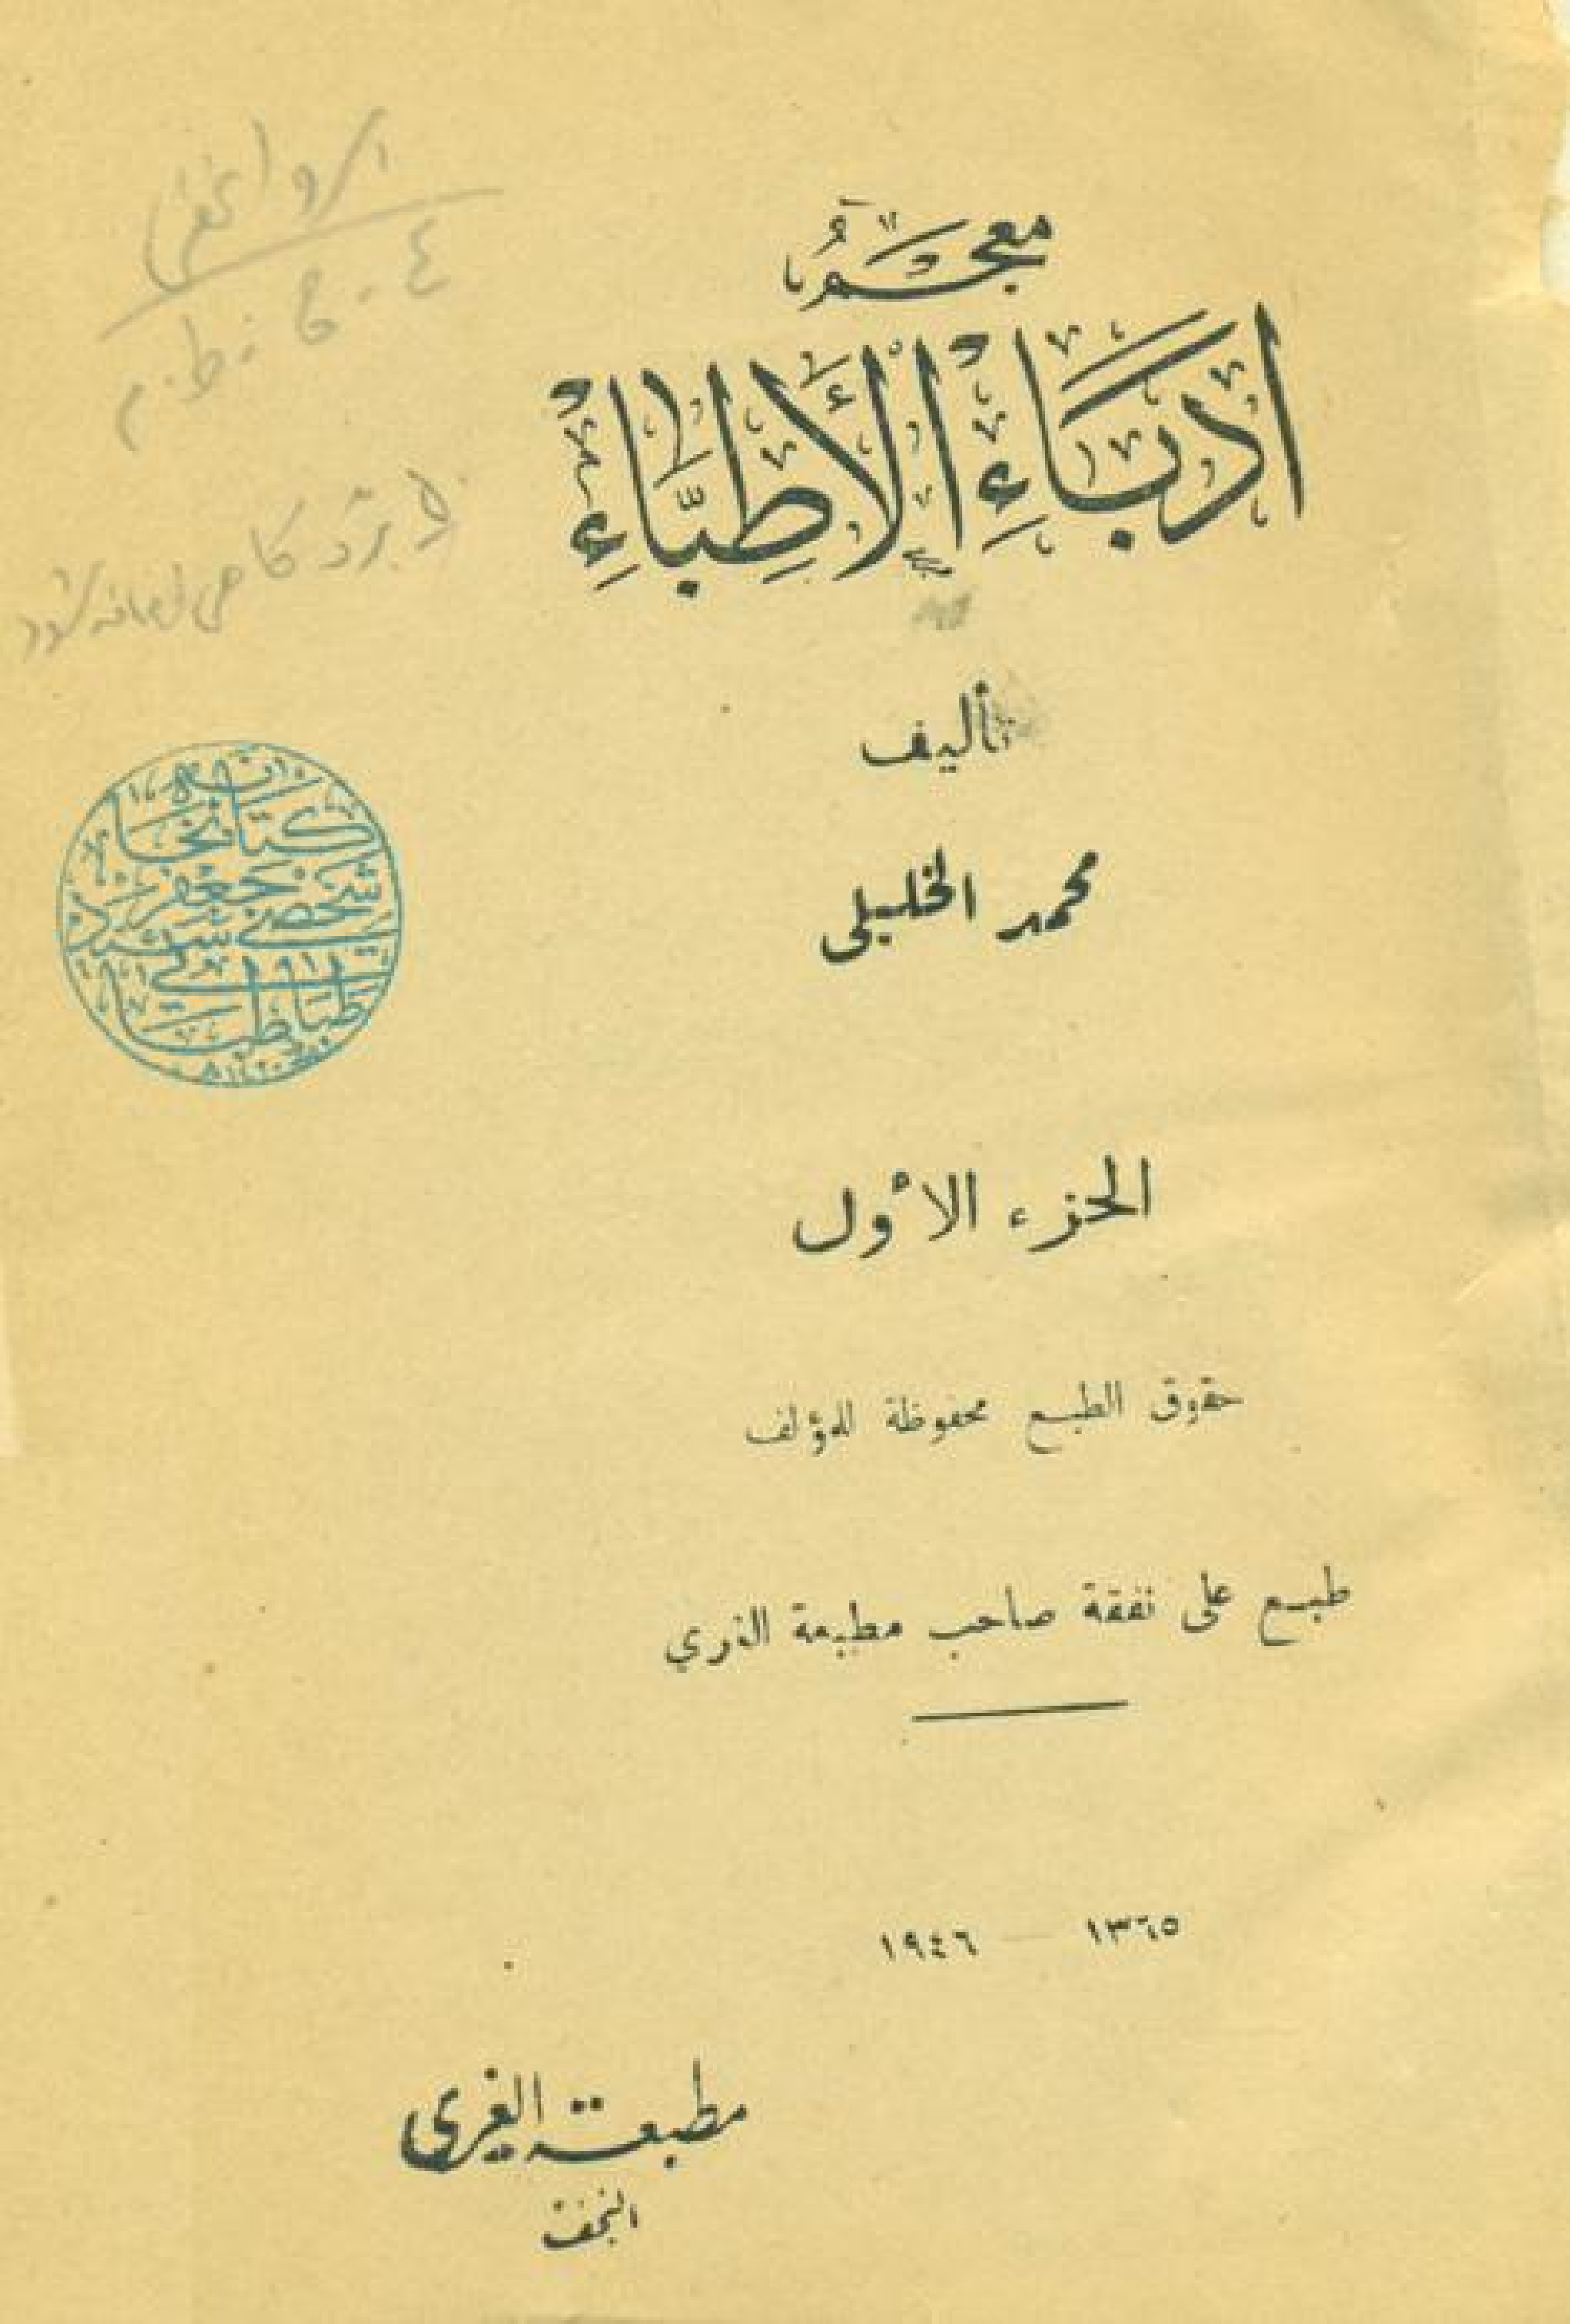 معجم
أدباء الأطباء
تأليف
محمد الخليلي
الجزء الأول
حقوق الطبع محفوظة للمؤلف
طبع على نفقة صاحب مطبعة الغري
١٣٦٥ — ١٩٤٦
مطبعة الغري
النجف
كتابخانه
شخصی جعفر سید
طباطبا